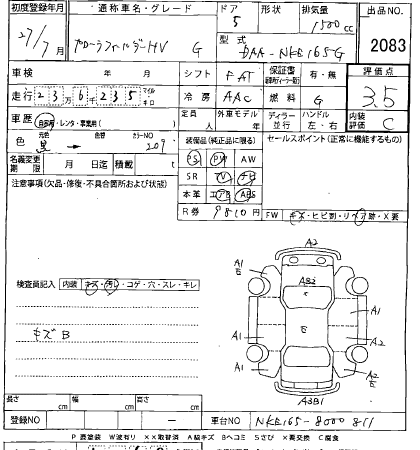 初度登録年月 通称車名・グレード ドア 形状 排気量 出品NO.
27/7月 カローラフィールダーHV G 5 1500cc
型式 DAA-NKE165-G 2083
車検 年 月 シフト FAT 保証書 有・無 評価点
走行 23万6235 マイル キロ 冷房 AAC 燃料 G 3.5
車歴 自家用・レンタ・事業用( ) 定員 人 外車モデル 年 ディーラー 並行 ハンドル 左・右 内装評価
色 元色 黒 → 色替 カラーNO 209 装備品(純正品に限る) セールスポイント(正常に機能するもの) C
名義変更期限 月 日迄 積載 t PS PW AW
注意事項(欠品・修復・不具合箇所および状態) SR TV ナビ
本革 エアB ABS
R券 9810円 FW キズ・ヒビ割・リペア跡・X要
A2
A1 E A1
AB2
検査員記入 内装 キズ・汚れ・コゲ・穴・スレ・キレ
A1 A1
キズB E
A1 A2
A1 E A2
A3B1
長さ cm 幅 cm 高さ cm
登録NO ー 車台NO NKE165-8000811
P 要塗装 W波有り XX取替済 A線キズ Bヘコミ Sさび X要交換 C腐食